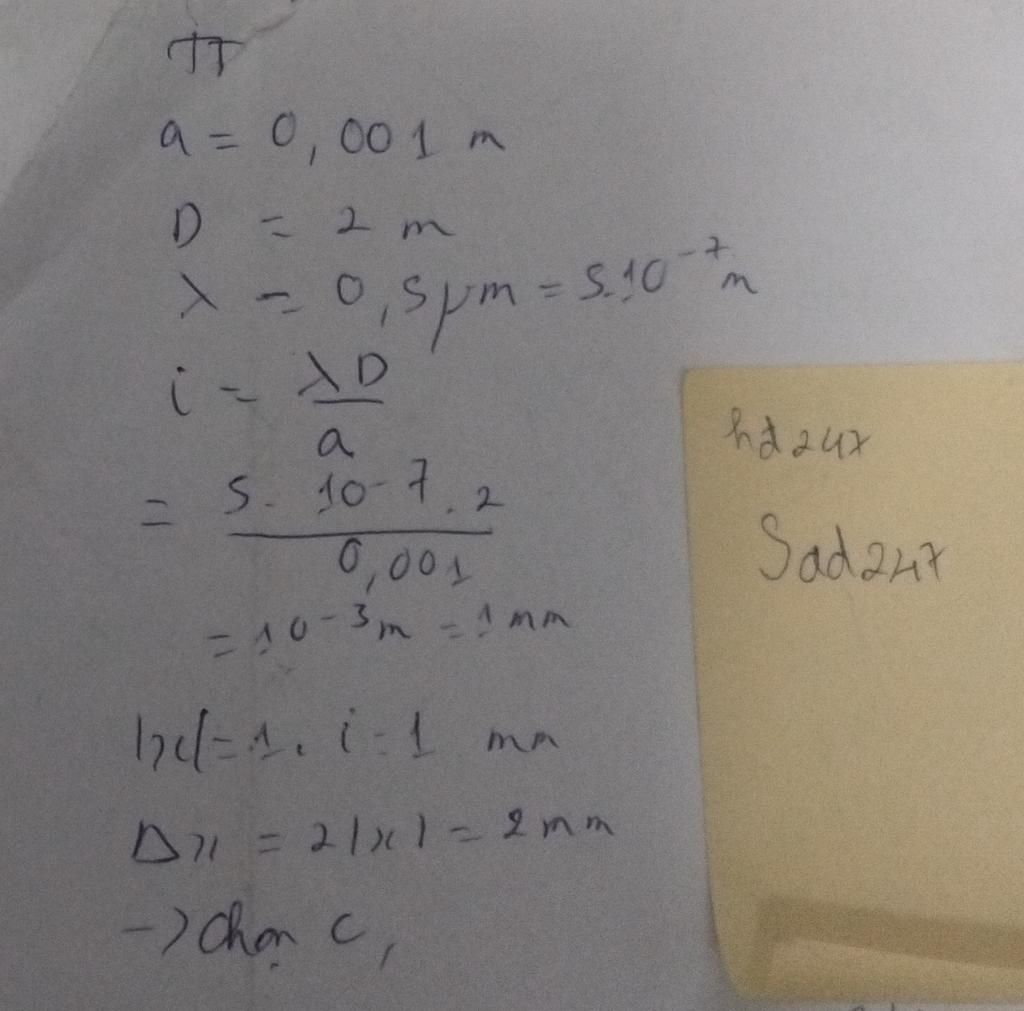 TT
a = 0,001 m
D = 2 m
λ = 0,5μm = 5.10⁻⁷ m
i = λD / a
= 5. 10-7 . 2 / 0,001
= 10⁻³m = 1 mm
|x| = 1. i = 1 mm
Δx = 2|x| = 2mm
-> Chọn C,
hd247
Sad247